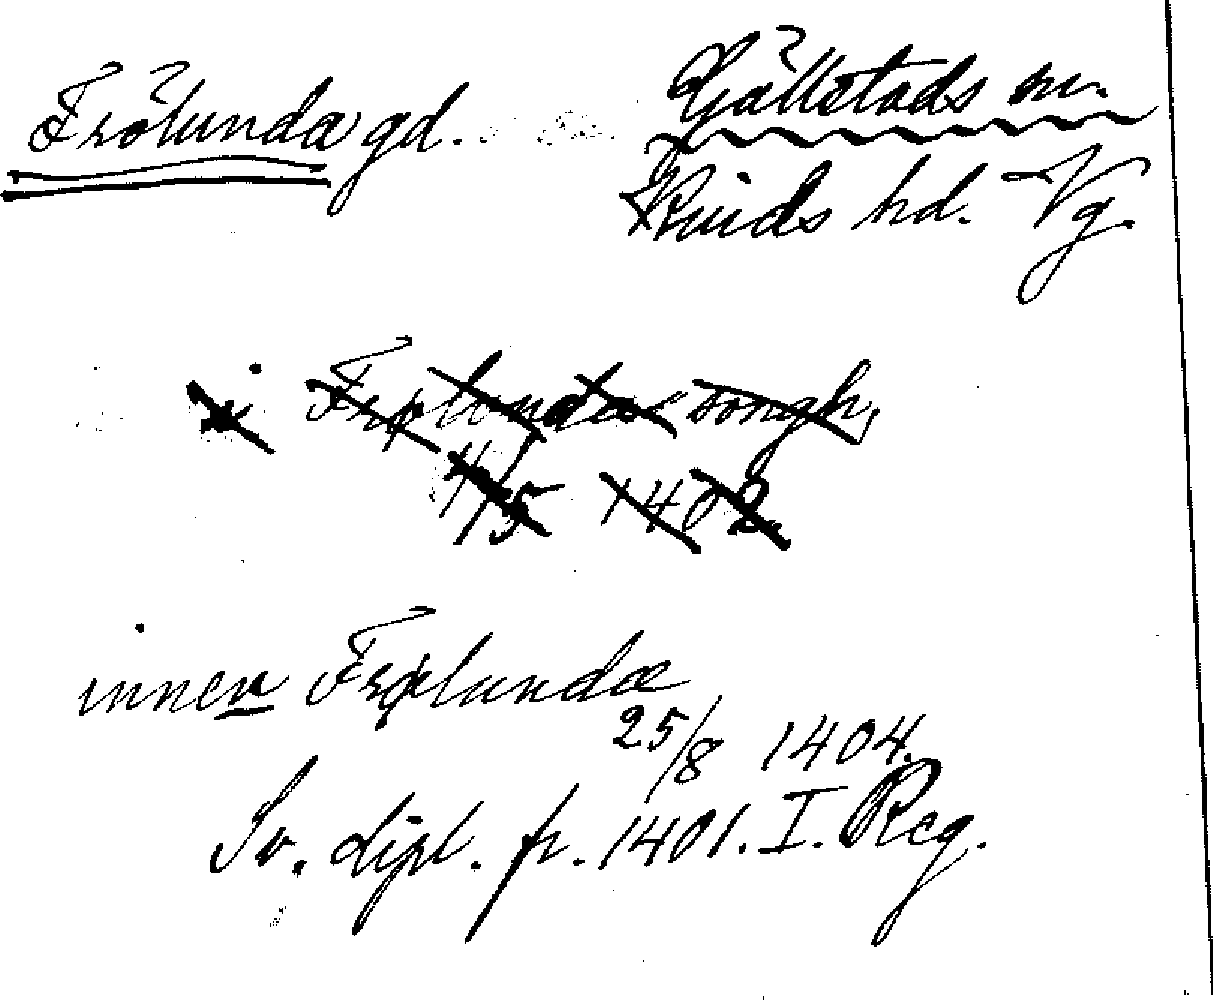 Frölunda gd. Gällstads sn.
Kinds hd. Vg.
i Frølunda songh,
11/5 1403
innen Frølunda
25/8 1404.
Sv. dipl. fr. 1401. I. Reg.